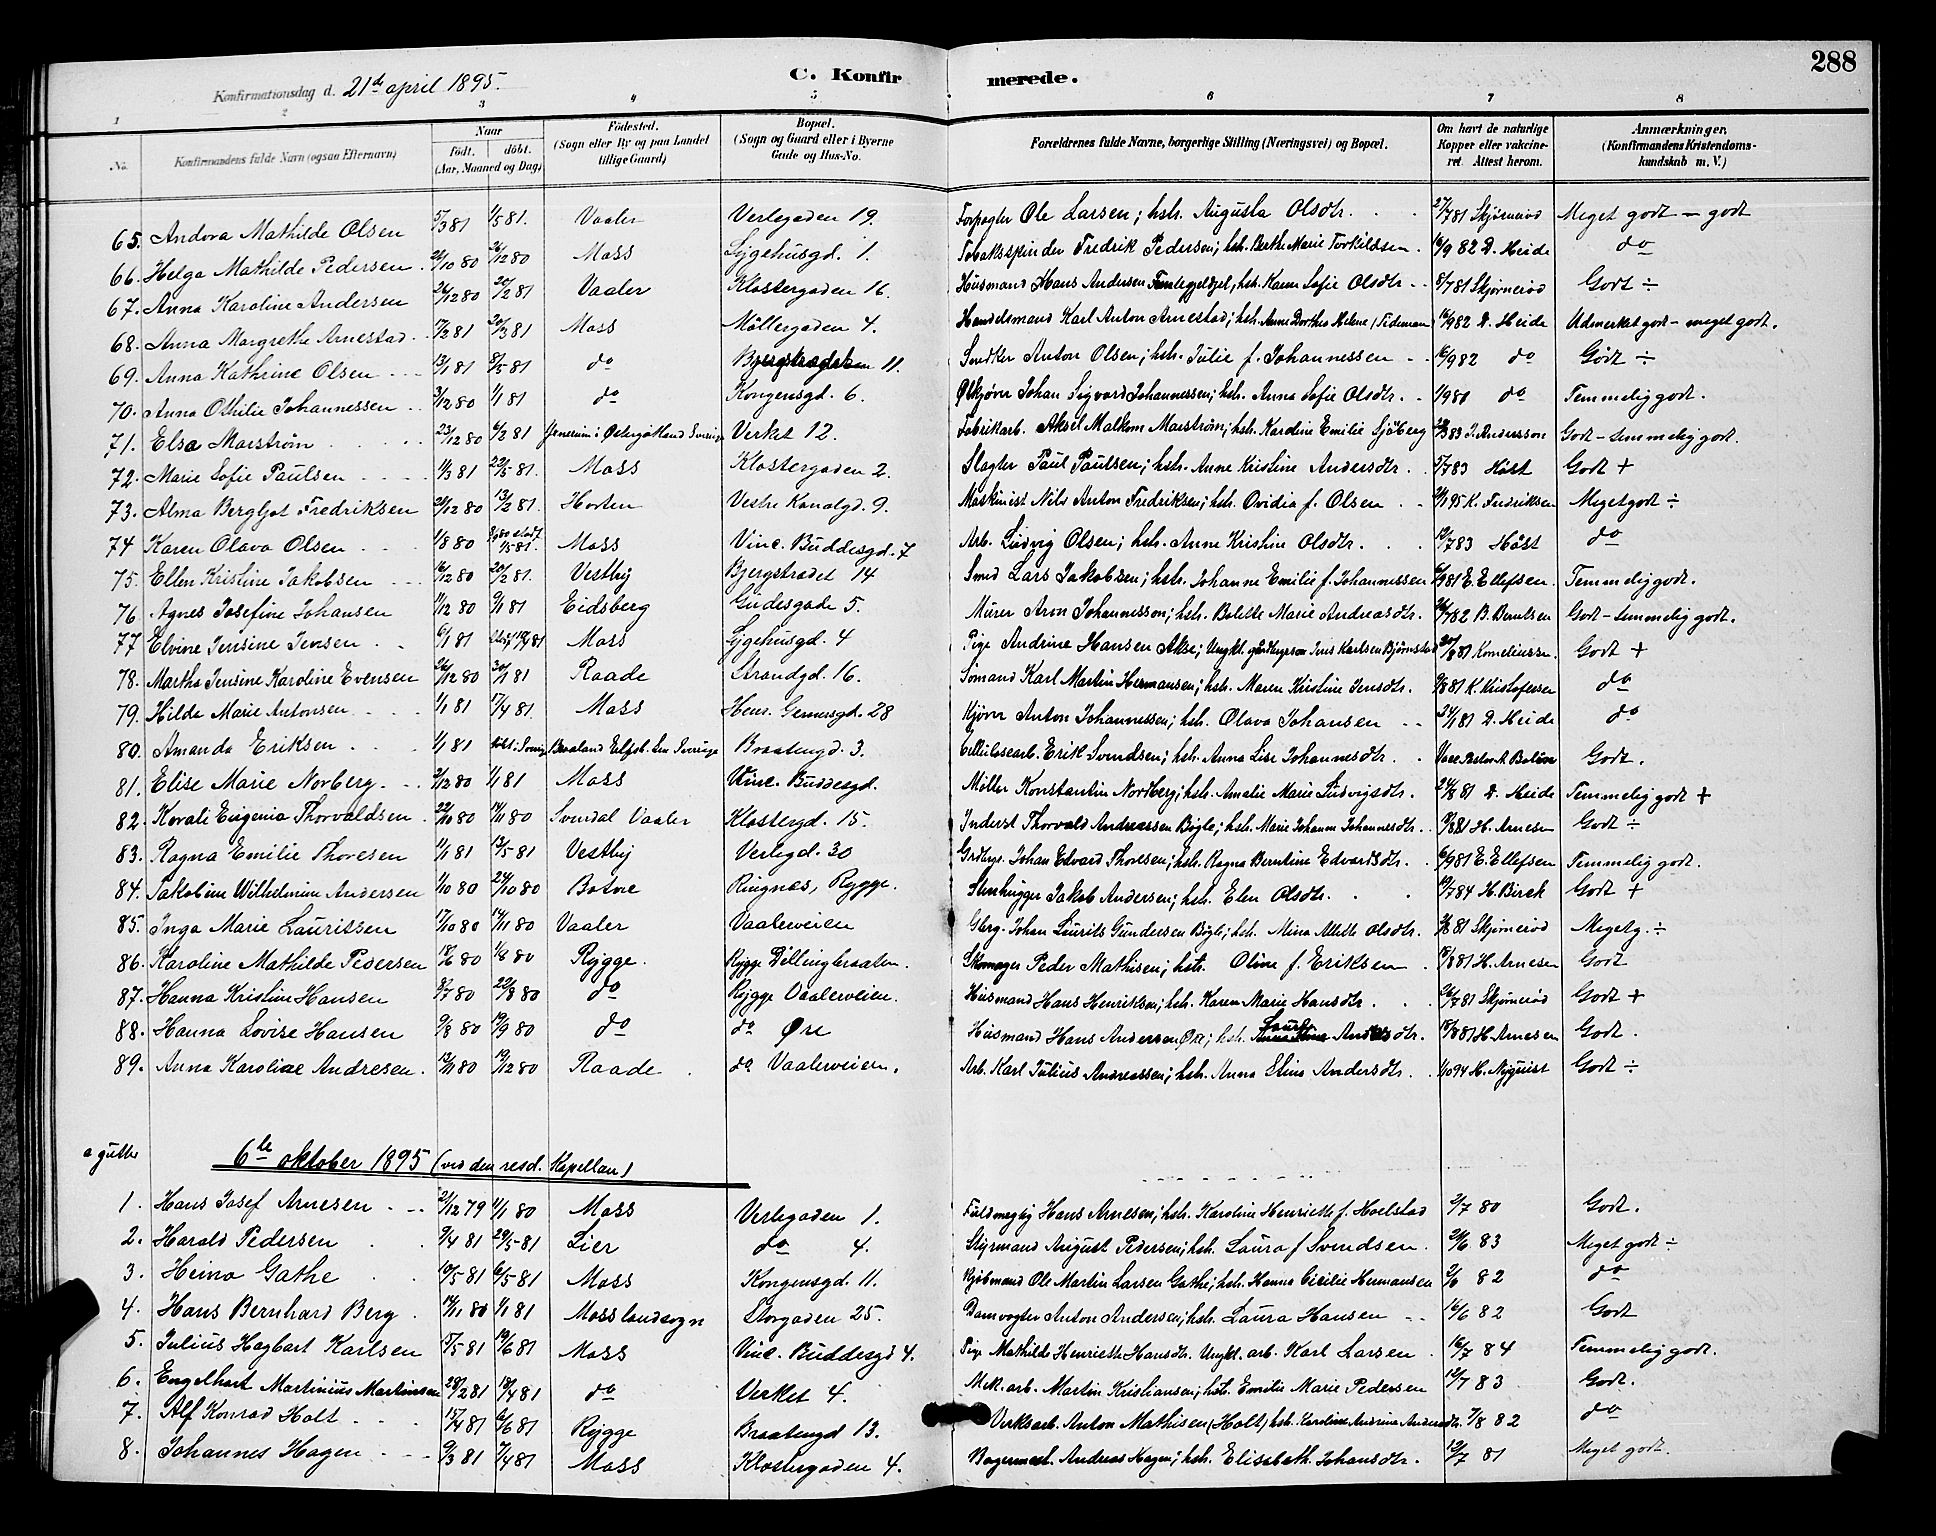 288
C. Konfirmerede.
Konfirmationsdag d. 21de april 1895.
1 2 3 4 5 6 7 8
No. Konfirmandens fulde Navn (ogsaa Efternavn) Naar født. døbt. (Aar, Maaned og Dag) Fødested. (Sogn eller By og paa Landet tillige Gaard) Bopæl. (Sogn og Gaard eller i Byerne Gade og Hus-No. Forældrenes fulde Navne, borgerlige Stilling (Næringsvei) og Bopæl. Om havt de naturlige Kopper eller vakcineret. Attest herom. Anmærkninger. (Konfirmandens Kristendomskundskab m. V.)
65. Andora Mathilde Olsen 5/3 81 1/5 81. Vaaler Verlegaden 19. Forpagter Ole Larsen; hstr. Augusta Olsdtr. 27/7 81 Skjørnerød Meget godt – godt
66. Helga Mathilde Pedersen /10 80 26/12 80 Moss Sygehusgd. 1. Tobaksspinder Fredrik Pedersen; hstr. Berthe Marie Torkildsen 16/9 82 D. Heide do
67. Anna Karoline Andersen 26/12 80 20/2 81 Vaaler Klostergaden 16. Husmand Hans Andersen hstr. Karen Sofie Olsdtr. 8/7 81 Skjørnerød Godt ÷
68. Anna Margrethe Arnestad 17/2 81 20/3 81 Moss Møllergaden 4. Handelsmand Karl Anton Arnestad; hstr. Anne Dorthea Helene Tideman 16/9 82 D. Heide Udmerket godt – meget godt.
69. Anna Kathrine Olsen 13/1 81 8/5 81 do Bjergstrædet 11. Snedker Anton Olsen; hstr. Julie f. Johannessen 16/9 82 do Godt ÷
70. Anna Othilie Johannessen 3/12 80 1/1 81 do Kongensgd. 6. Johan Sigvard Johannessen; hstr. Anna Sofie Olsdtr. 1/9 81 do Temmelig godt.
71. Elsa Marstrøm 23/12 80 6/2 81 i Østergøtland Sverige Verket 12. Fabrikarb. Aksel Malkom Marstrøm; hstr. Karoline Emilie Sjöberg 83 J. Andersson Godt – temmelig godt.
72. Marie Sofie Paulsen 11/3 81 22/5 81. Moss Klostergaden 2. Slagter Paul Paulsen; hstr. Anne Kristine Andersdtr. 5/7 83 Høst Godt +
73. Alma Bergljot Fredriksen 21/12 80 13/2 81. Horten Vestre Kanalgd. 9. Maskinist Nils Anton Fredriksen; hstr. Ovidia f. Olsen 95 K. Fredriksen Meget godt ÷
74 Karen Olava Olsen 1/8 80 1/5 81. Moss Vinc. Buddesgd. 7 Arb. Ludvig Olsen; hstr. Anne Kristine Olsdtr. 19/7 83 Høst do
75. Ellen Kristine Jakobsen 16/12 80 20/2 81. Vestby Bjergstrædet 14 Smed Lars Jakobsen; hstr. Johanne Emilie f. Johannessen 6/9 81 E. Ellefsen. Temmelig godt.
76 Agnes Josefine Johansen 11/12 80 9/1 81 Eidsberg Gudesgade 5. Murer Aron Johannesson; hstr. Bolette Marie Andreasdtr. 26/7 82 B. Berntsen Godt – temmelig godt.
77 Elvine Jensine Jensen 6/1 81 81 Moss Sygehusgd. 4 Pige Andrine Hansen Akse; Ungkl. Jens Karlsen Bjørnstad 81 Korneliussen Godt +
78. Martha Jensine Karoline Evensen 26/12 80 30/1 81 Raade Strandgd. 16. Sømand Karl Martin Hermansen; hstr. Maren Kristine Jensdtr. 9/8 81 K. Kristofersen do
79. Hilda Marie Antonsen 1/1 81 17/4 81. Moss Henr. Gernersgd. 28 Kjører Anton Johannessen; hstr. Olava Johansen 24/1 81 D. Heide do
80. Amanda Eriksen 1/1 81 Sverige Braatengd. 3. Cellulosearb. Erik Svendsen; hstr. Anna Lise Johannesdtr. Godt.
81. Elise Marie Norberg 2/12 80 1/1 81 Moss Vinc. Buddesgd. Møller Konstantin Nordberg; hstr. Amalie Marie Ludvigsdtr. 24/8 81 D. Heide Temmelig godt +
82. Korali Eugenia Thorvaldsen 22/10 80 14/11 80 Svendal Vaaler Klostergd. 15. Inderst Thorvald Andreassen Bøgle; hstr. Marie Johanne Johannesdtr. 81 H. Arnesen Godt ÷
83. Ragna Emilie Thoresen 11/1 81 15/5 81 Vestby Verlegd. 30 Grdbrgr. Johan Edvard Thoresen; hstr. Ragna Berntine Edvardsdtr. 6/9 81 E. Ellefsen Temmelig godt.
84. Jakobine Wilhelmine Andersen 1/10 80 24/10 80 Botne Ringnæs, Rygge. Stenhugger Jakob Andersen; hstr. Elen Olsdtr. 19/7 84 H. Birch Godt +
85. Inga Marie Lauritsen 17/10 80 14/11 80 Vaaler Vaalerveien Gbrg. Johan Laurits Gundersen Bøgle; hstr. Mina Alette Olsdtr. 81 Skjørnerød Megetg. ÷
86. Karoline Mathilde Pedersen 18/6 80 1/8 80 Rygge. Rygge Dillingbraaten. Skomager Peder Mathisen; hstr. Oline f. Eriksen 81 H. Arnesen Godt
87. Hanna Kristine Hansen 8/7 80 22/8 80 do Rygge Vaalerveien. Husmand Hans Henriksen; hstr. Karen Marie Hansdtr. 26/7 81 Skjørnerød Godt +
88. Hanna Lovise Hansen 9/8 80 19/9 80 do do Øre Husmand Hans Andersen Øre; hstr. Laura 81 H. Arnesen Godt.
89. Anna Karoline Andresen. 12/11 80 19/12 80 Raade do Vaalerveien. Arb. Karl Julius Andreassen; hstr. Anna Stine Andersdtr. 94 H. Nyquist Godt ÷
a gutter 6te oktober 1895 (ved den resd. Kapellan)
1. Hans Josef Arnesen 21/12 79 1/1 80 Moss Verlegaden 1. Fuldmægtig Hans Arnesen; hstr. Karoline Henriette f. Hoelstad 2/7 80 Godt.
2. Harald Pedersen 9/4 81 29/5 81 Lier do 4. Styrmand August Pedersen; hstr. Laura f. Svendsen 29/6 83 Meget godt ÷
3. Heino Gathe 10/5 81 6/5 81 Moss Kongensgd. 11. Kjøbmand Ole Martin Larsen Gathe; hstr. Hanna Cicilie Hermansen 2/6 82 do
4. Hans Bernhard Berg 14/11 80 1/1 81 Moss landsogn Storgaden 25. Damvogter Anton Andersen; hstr. Laura Hansen 16/6 82 Godt
5. Julius Hagbart Karlsen 15/5 81 19/6 81 Moss Vinc. Buddesgd 4. Pige Mathilde Henriette Hansdtr. Ungkl. arb. Karl Larsen 16/7 84 Temmelig godt.
6. Engelhart Martinius Martinsen 28/2 81 18/4 81 do Verket 4. Mek. arb. Martin Kristiansen; hstr. Emilie Marie Pedersen 12/7 83 Godt.
7. Alf Konrad Holt 15/4 81 6/6 81 Rygge Braatengd 13. Verksarb. Anton Mathisen (Holt) hstr. Karoline Andrina Andersdtr. 7/8 82 do
8. Johannes Hagen 9/3 81 7/4 81 Moss Klostergaden 4. Bagermest. Andreas Hagen; hstr. Elisabeth Johansdtr. 12/7 81 Meget godt.